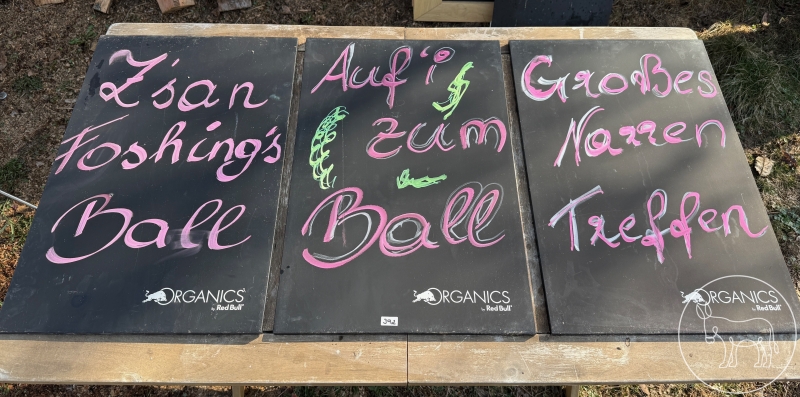 Z'san
Foshing's
Ball
ORGANICS
by Red Bull
Auf'i
zum
Ball
ORGANICS
by Red Bull
392
Großes
Narren
Treffen
ORGANICS
by Red Bull